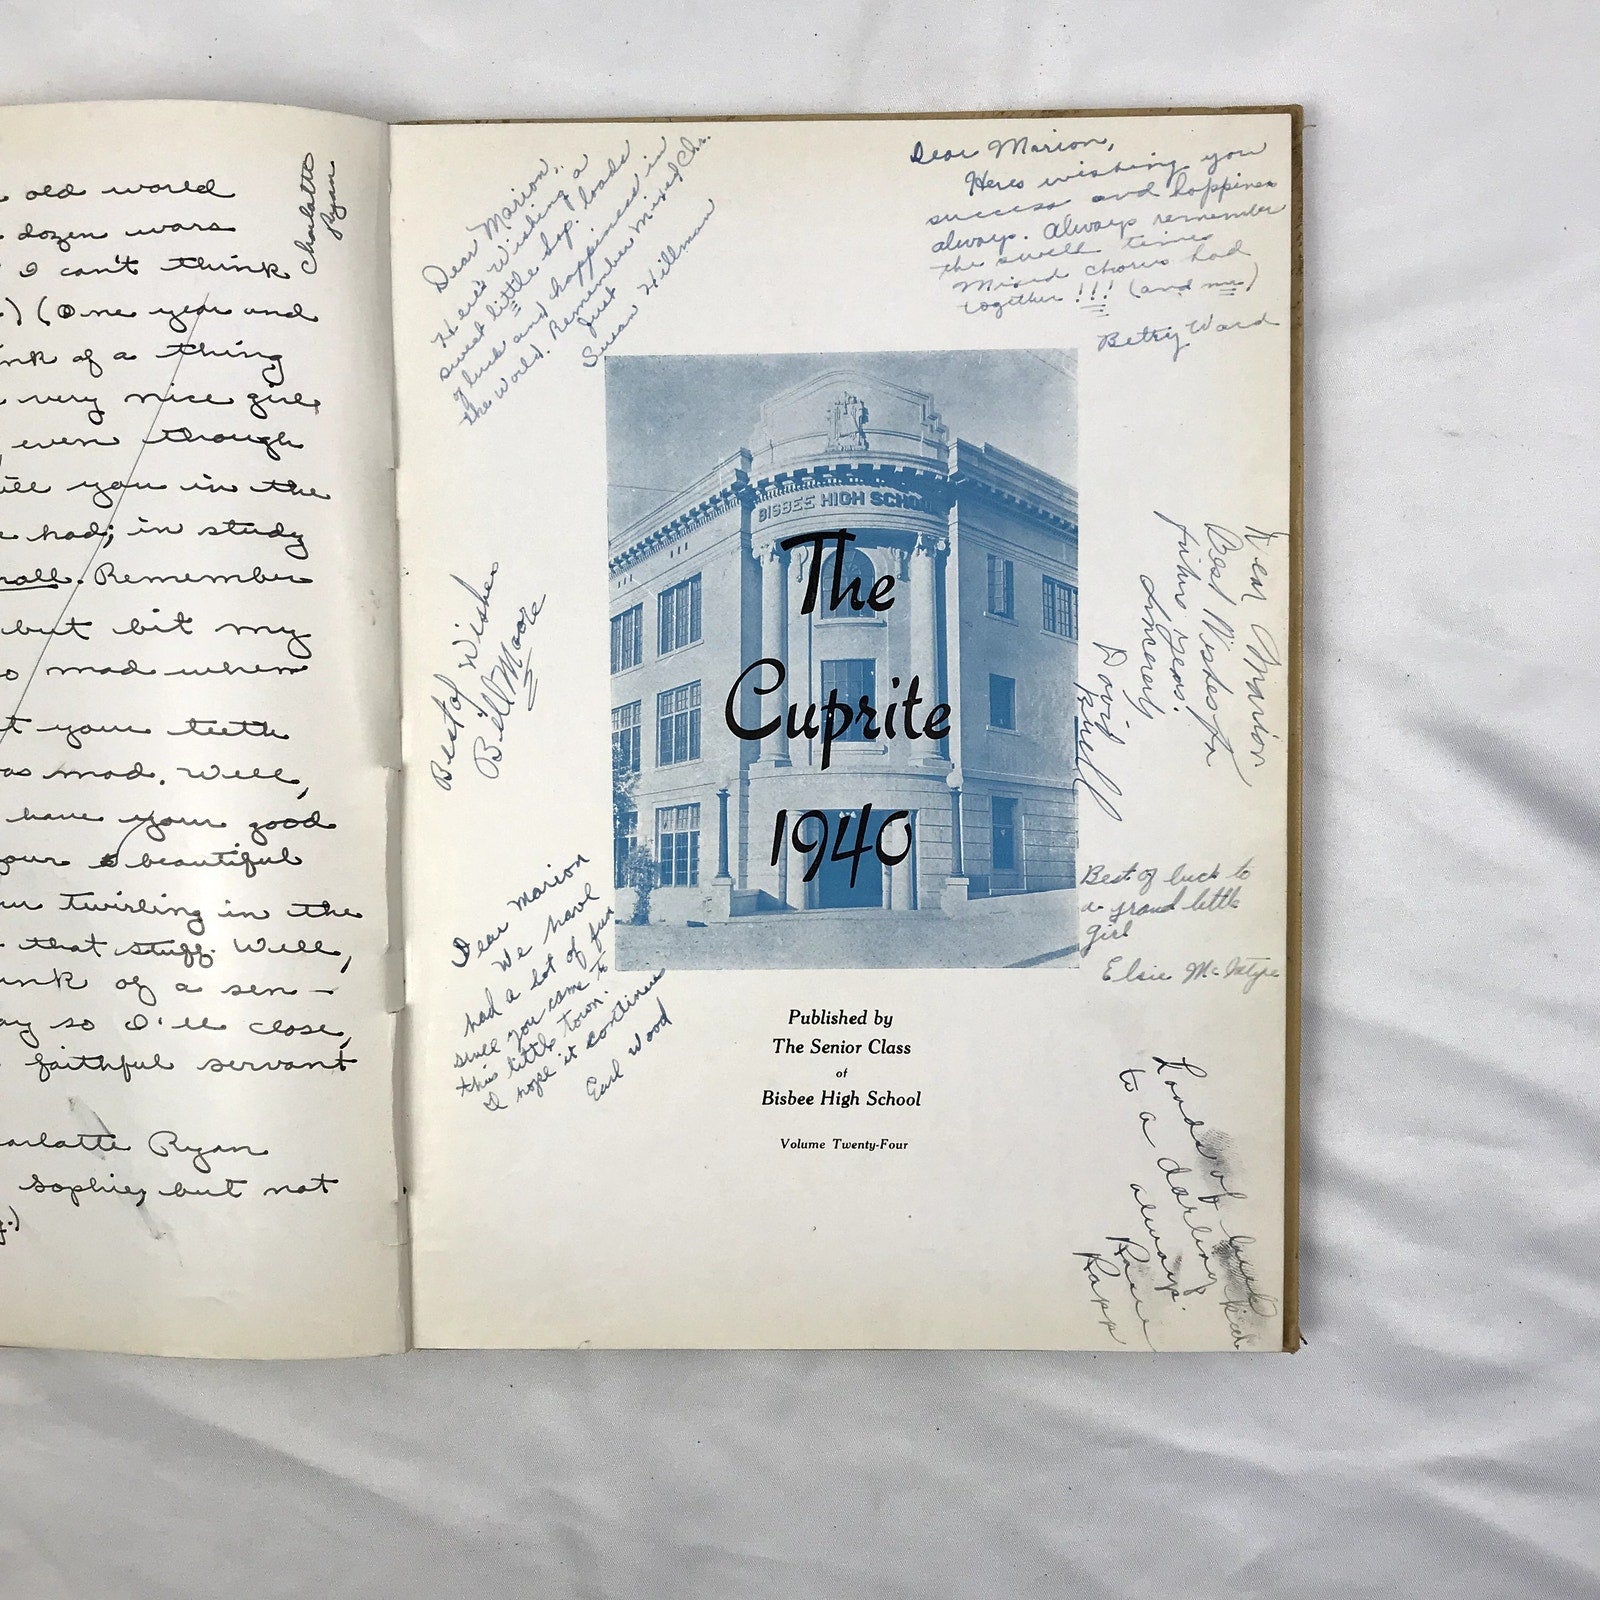 old world
dozen wars
I can't think
) (One year and
of a thing
very nice girl,
even though
you in the
had; in study
Remember
but bit my
mad when
your teeth
mad. Well,
have your good
beautiful
twirling in the
that stuff. Well,
of a sen-
so I'll close,
faithful servant
Ryan
Sophie, but not
Charlotte
Ryan
Dear Marion,
Here's wishing a
sweet little sop. loads
of luck and happiness in
the world. Remember Mixed Cho.
Just
Susan Hillman
Dear Marion,
Heres wishing you
success and happiness
always. Always remember
the swell times
Mixed chorus had
together!!! (and me)
Betty Ward
BISBEE HIGH SCHOOL
The
Cuprite
1940
Best of Wishes
Bill Moore
Dear Marion
Best Wishes for
future years.
Sincerely
David
Dear Marion
We have
had a lot of fun
since you came to
this little town.
I hope it continues
Earl Wood
Best of luck to
a grand little
girl
Elsie McIntyre
Published by
The Senior Class
of
Bisbee High School
Volume Twenty-Four
Loads of luck
to a darling
always.
Rapp